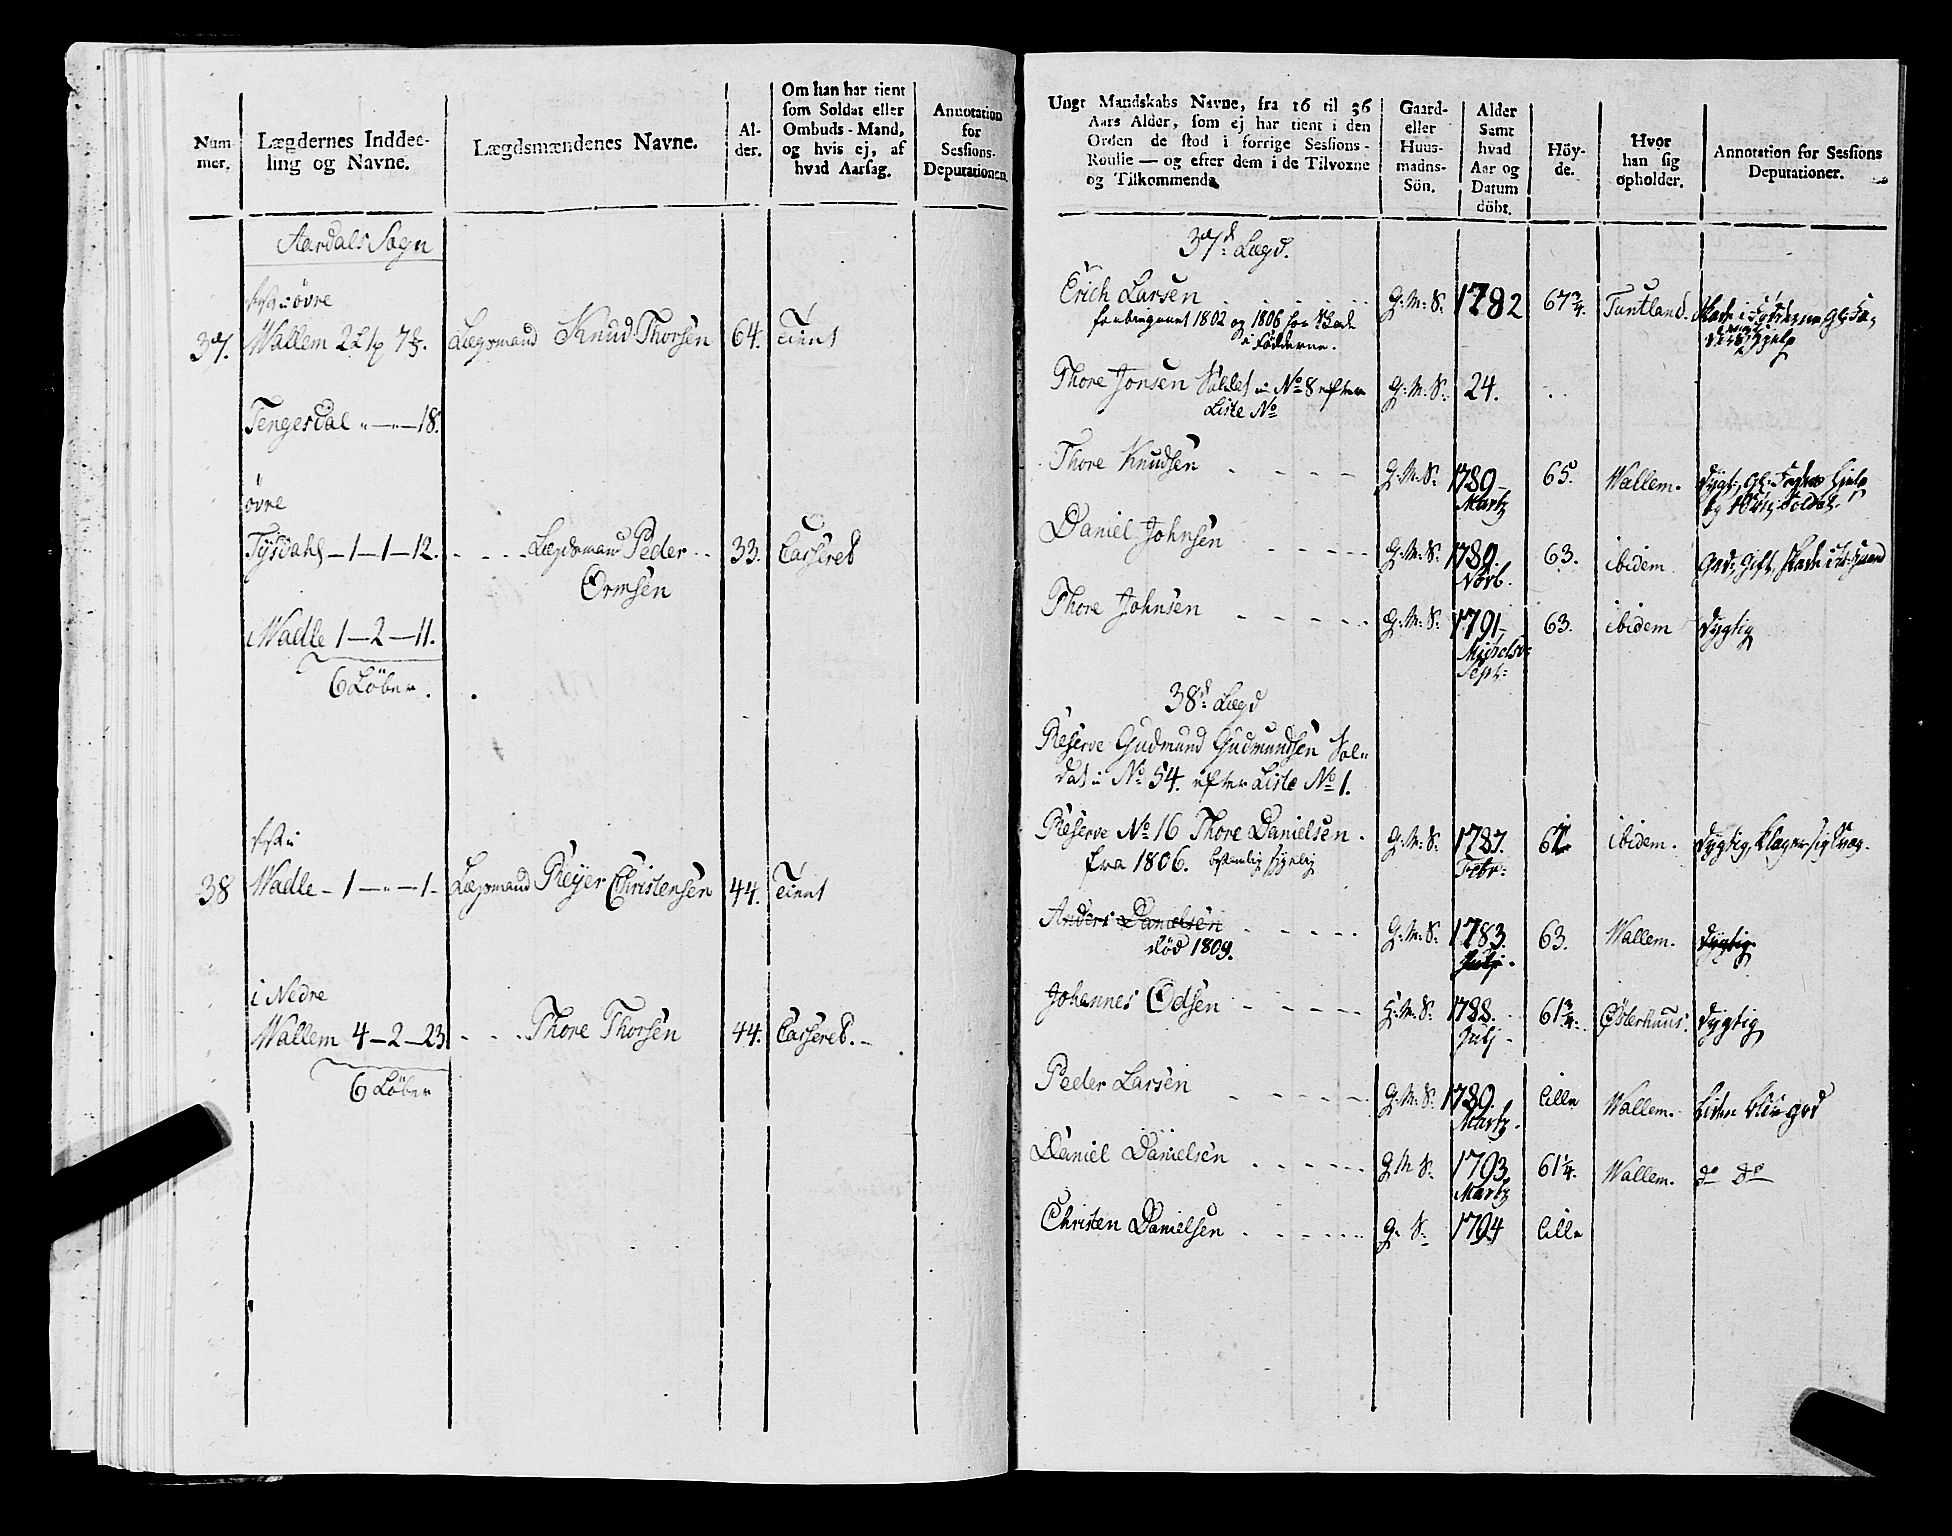 Num-
mer.
Lægdernes Inddee-
ling og Navne.
Lægdsmændenes Navne.
Al-
der.
Om han har tient
som Soldat eller
Ombuds-Mand,
og hvis ej, af
hvad Aarsag.
Annotation
for
Sessions-
Deputationen.
Aardals Sogn
øvre
37. Wallem Lægdsmand Knud Thorsen 64. Tient
Tengesdal " — " — 18.
øvre
Tysdahl — 1 — 1 — 12. Lægdsmand Peder 33. Casseret
Ormsen
Wadle 1 — 2 — 11.
6 Løber.
38 Wadle — 1 — " — 1. Lægdsmand Reijer Christensen 44. Tient
i Nedre
Wallem 4 — 2 — 23 Thore Thorsen 44. Casseret.
6 Løber
Ungt Mandskabs Navne, fra 16 til 36
Aars Alder, som ej har tient i den
Orden de stod i forrige Sessions-
Roulle — og efter dem i de Tilvoxne
og Tilkommende
Gaard-
eller
Huus-
madns-
Sön.
Alder
Samt
hvad
Aar og
Datum
döbt.
Höy-
de.
Hvor
han sig
opholder.
Annotation for Sessions
Deputationer.
37d. Lægd.
Erich Larsen G: M: S. 1782 67 3/4. Tuntland.
1802 og 1806 for Skade
i Fødderne.
Thore Jonsen Soldat i No 8 efter G: M: S. 24.
Liste No
Thore Knudsen G: M: S: 1789 65. Wallem.
Martz
Daniel Johnsen G: M: S: 1789. 63. ibidem
Novb.
Thore Johnsen G: M: S: 1791, 63. ibidem dygtig
Sept:
38d. Lægd
Reserve Gudmund Gudmundsen Sol-
dat i No 54. efter Liste No 1.
Reserve No 16 Thore Danielsen. G: M: S 1787. ibidem. dygtig, klager sig
fra 1806. Febr:
Anders Danielsen G: M: S: 1783. 63. Wallem. dygtig.
død 1809. Julj.
Johannes Odsen G: M: S: 1788. 61 3/4. Østerhuus. dygtig
Julj
Peder Larsen G: M: S: 1789. lille Wallem. liden
Martz.
Daniel Danielsen G M S: 1793. 61 1/4. Wallem. do do
Martz
Christen Danielsen G: S: 1794 lille